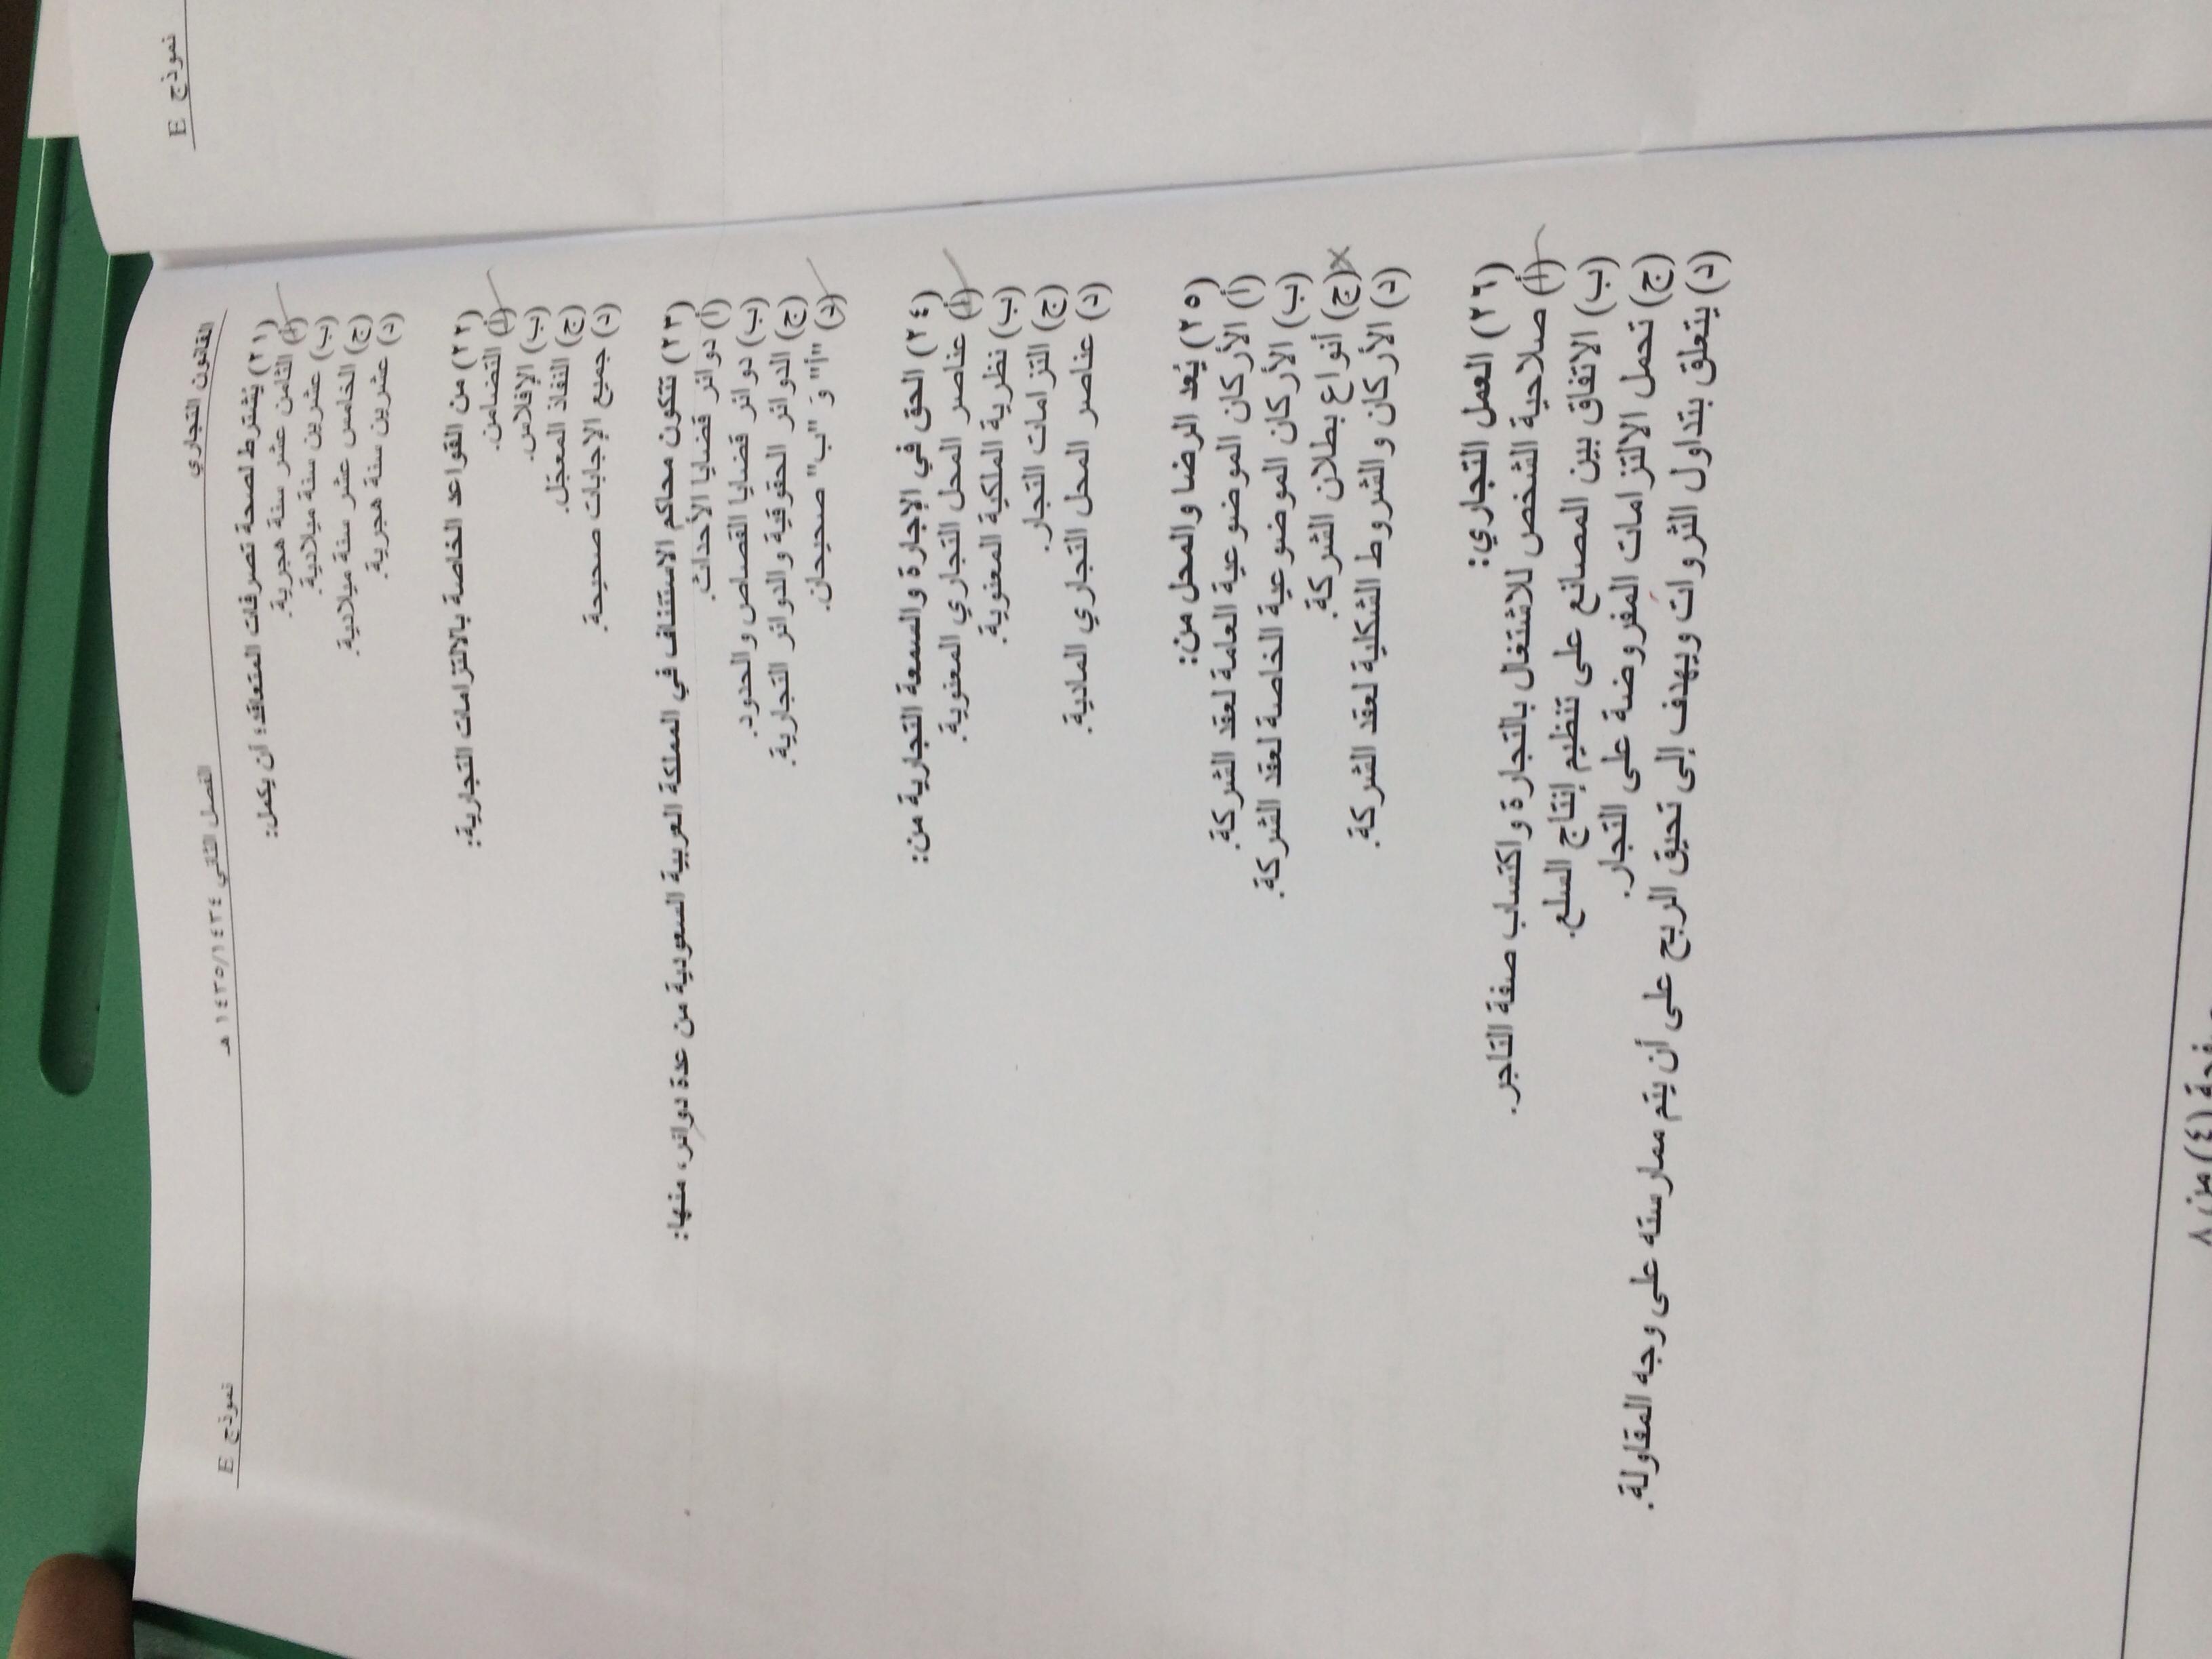 القانون التجاري الفصل الثاني ١٤٣٥/١٤٣٤ هـ نموذج E
(٢١) يشترط لصحة تصرفات المتعاقد؛ أن يكمل:
(أ) الثامن عشر سنة هجرية.
(ب) عشرين سنة ميلادية.
(ج) الخامس عشر سنة ميلادية.
(د) عشرين سنة هجرية.
(٢٢) من القواعد الخاصة بالالتزامات التجارية:
(أ) التضامن.
(ب) الإفلاس.
(ج) النفاذ المعجّل.
(د) جميع الإجابات صحيحة.
(٢٣) تتكون محاكم الاستئناف في المملكة العربية السعودية من عدة دوائر، منها:
(أ) دوائر قضايا الأحداث.
(ب) دوائر قضايا القصاص والحدود.
(ج) الدوائر الحقوقية والدوائر التجارية.
(د) "أ" وَ "ب" صحيحان.
(٢٤) الحق في الإجارة والسمعة التجارية من:
(أ) عناصر المحل التجاري المعنوية.
(ب) نظرية الملكية المعنوية.
(ج) التزامات التجار.
(د) عناصر المحل التجاري المادية.
(٢٥) يُعد الرضا والمحل من:
(أ) الأركان الموضوعية العامة لعقد الشركة.
(ب) الأركان الموضوعية الخاصة لعقد الشركة.
(ج) أنواع بطلان الشركة.
(د) الأركان والشروط الشكلية لعقد الشركة.
(٢٦) العمل التجاري:
(أ) صلاحية الشخص للاشتغال بالتجارة واكتساب صفة التاجر.
(ب) الاتفاق بين المصانع على تنظيم إنتاج السلع.
(ج) تحمل الالتزامات المفروضة على التجار.
(د) يتعلق بتداول الثروات ويهدف إلى تحيق الربح على أن يتم ممارسته على وجه المقاولة.
صفحة (٤) من ٨
نموذج E